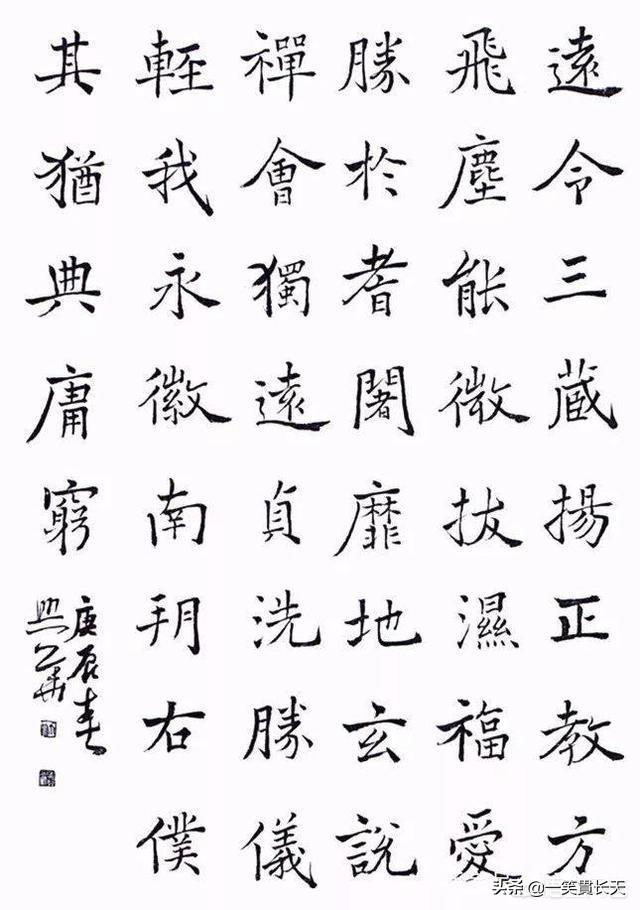 遠令三蔵揚正教方
飛塵能微拔濕福愛
勝於耆闍靡地玄說
禪會獨遠貞洗勝儀
輊我永徽南右僕
其猶典庸窮
庚辰春
头条 @一笑貫长天